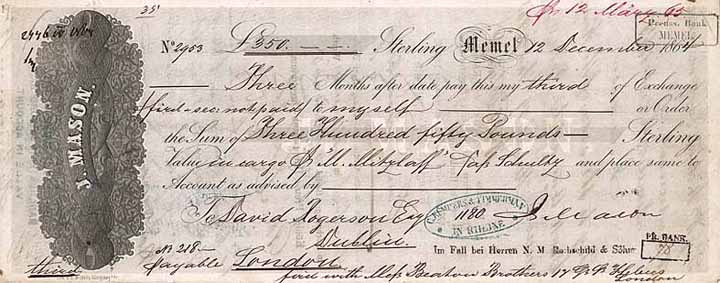 35'
pr 12 März 65
Preuss. Bank
MEMEL
No 2953 £350.— — Sterling Memel 12 December 1864
J. MASON
Three Months after date pay this my third of Exchange
(first & sec. not paid) to myself or Order
the Sum of Three Hundred fifty Pounds— Sterling
Value in cargo pr "M. Mitzlaff" Cap Schultz and place same to
Account as advised by
To David Rogerson Esq 1180. J. Mason
CREMPERS & TIMMERMAN
IN RHEINE
Dublin.
No 218.—
Im Fall bei Herren N. M. Rothschild & Söhne
PR. BANK.
third Payable London
first with Mess Beaton Brothers 17
London